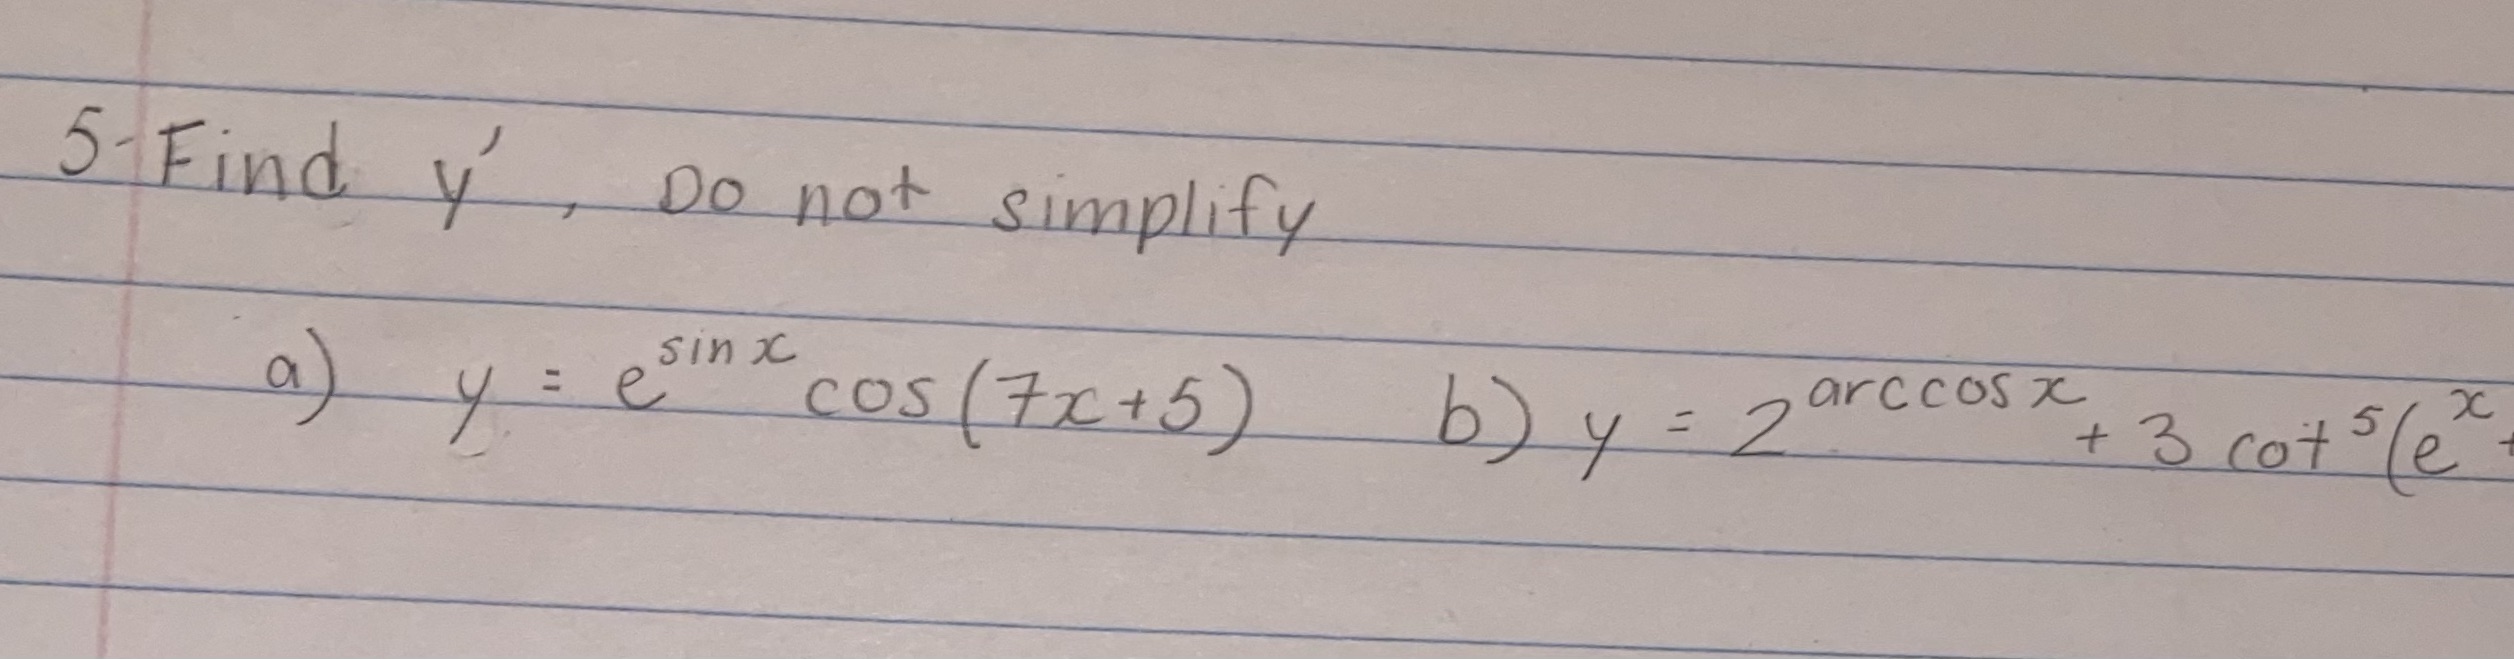 5- Find y', Do not simplify
a) y = e^sin x cos(7x+5) b) y = 2^arccos x + 3 cot^5(e^x +